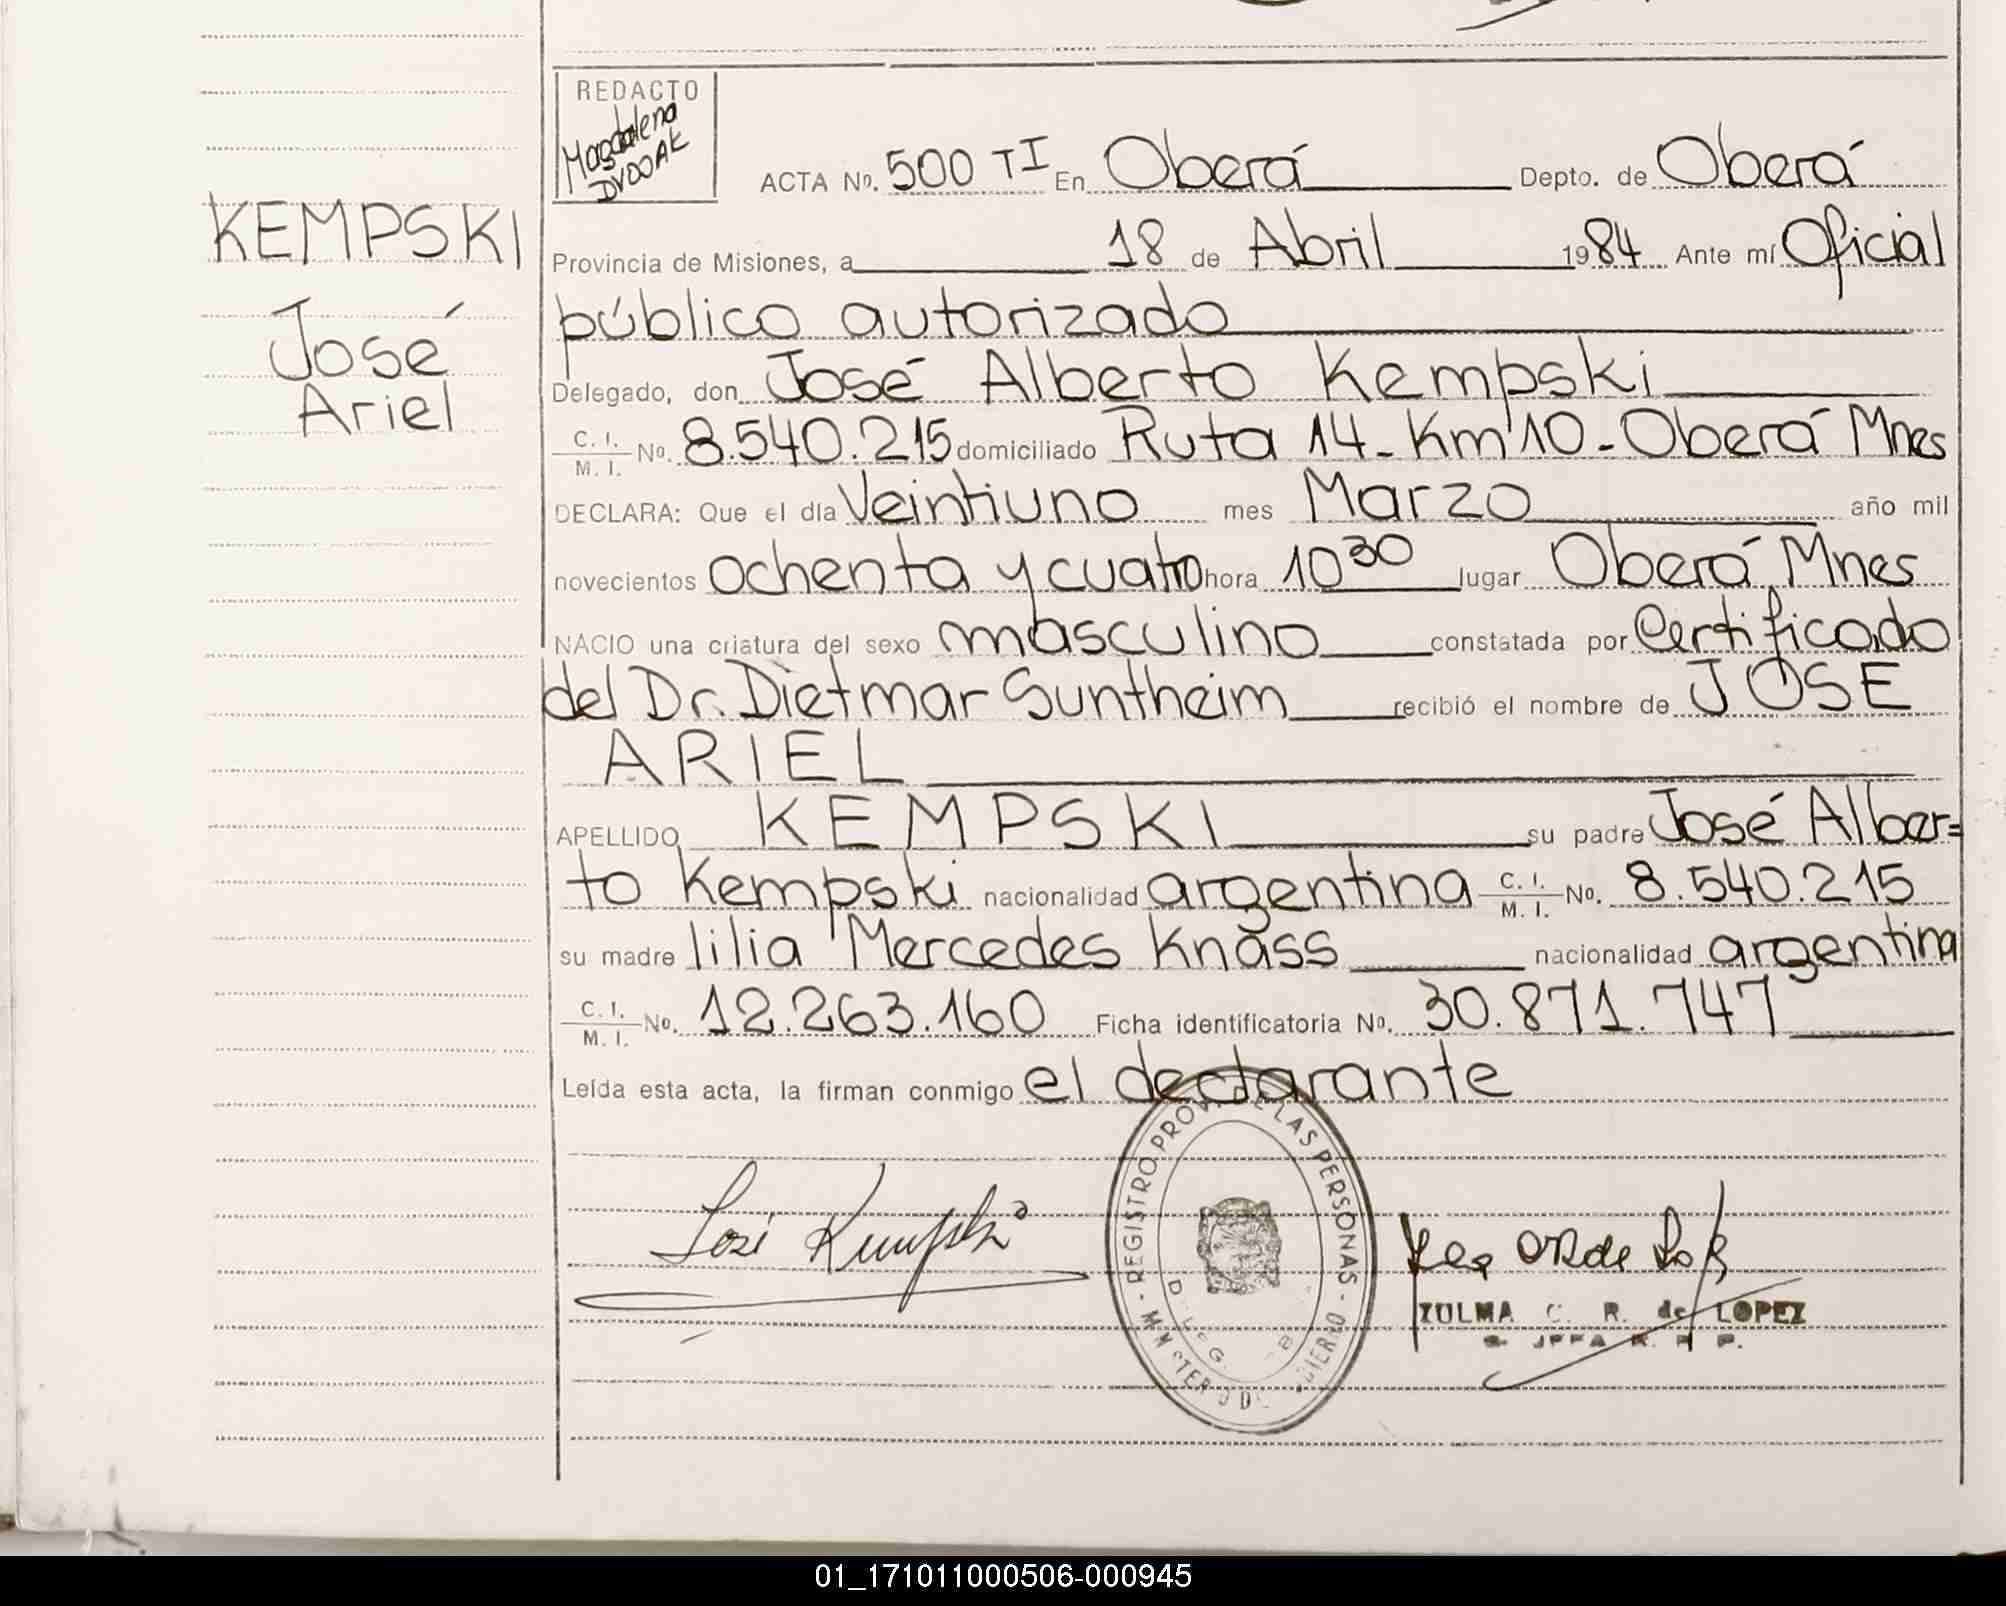 REDACTO
Magdalena
DVOOAK
ACTA No. 500 TI En Oberá Depto. de Oberá
KEMPSKI
Provincia de Misiones, a 18 de Abril 1984 Ante mí Oficial
público autorizado
José
Ariel
Delegado, don José Alberto Kempski
C. I. M. I. No. 8.540.215 domiciliado Ruta 14 - Km 10 - Oberá Mnes
DECLARA: Que el día Veintiuno mes Marzo año mil
novecientos ochenta y cuatro hora 10 30 lugar Oberá Mnes
NACIO una criatura del sexo masculino constatada por Certificado
del Dr. Dietmar Suntheim recibió el nombre de JOSE
ARIEL
APELLIDO KEMPSKI su padre José Alber=
to Kempski nacionalidad argentina C. I. M. I. No. 8.540.215
su madre lilia Mercedes Knäss nacionalidad argentina
C. I. M. I. No. 12.263.160 Ficha identificatoria No. 30.871.747
Leída esta acta, la firman conmigo el declarante
REGISTRO PROV. DE LAS PERSONAS
José Kempski
ZULMA C. R. de LOPEZ
01_171011000506-000945